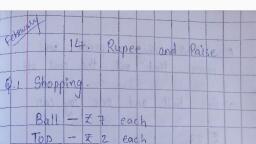 February
14. Rupee and Paise
Q.1 Shopping.
Ball - ₹ 7 each
Top - ₹ 2 each